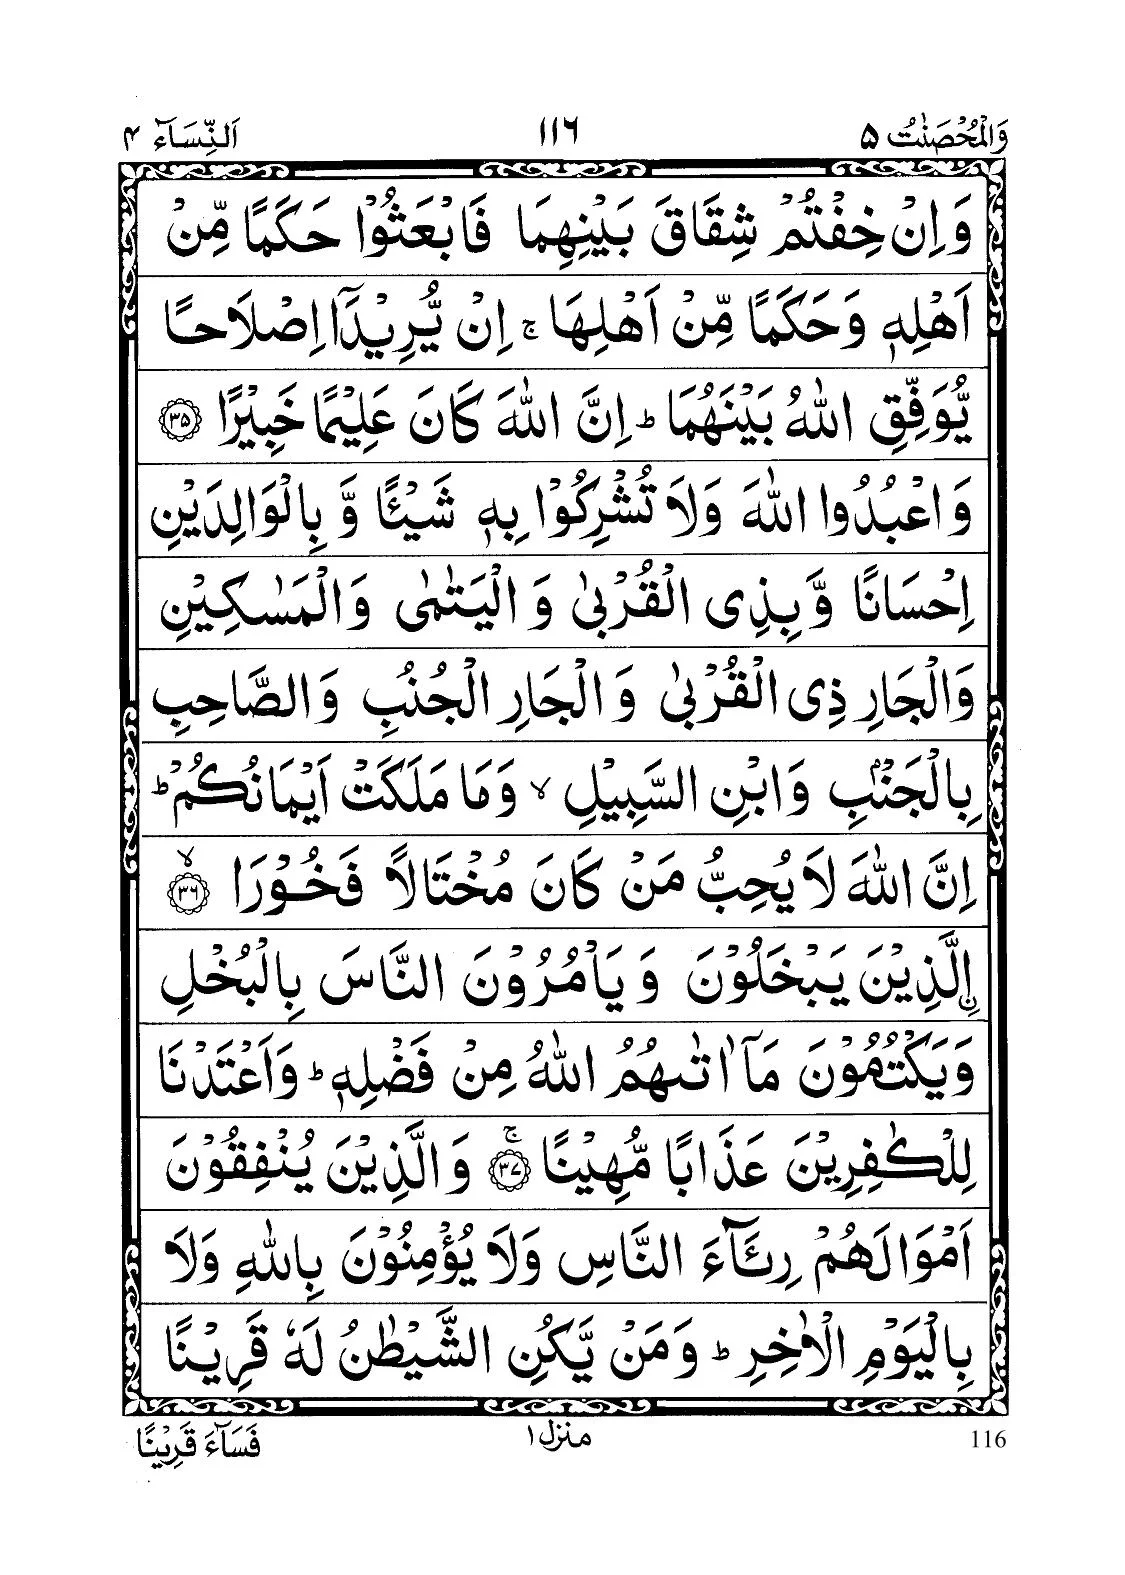 وَالْمُحْصَنٰتُ ۵ ١١٦ اَلنِّسَآء ۴
وَاِنْ خِفْتُمْ شِقَاقَ بَيْنِهِمَا فَابْعَثُوْا حَكَمًا مِّنْ
اَهْلِهٖ وَحَكَمًا مِّنْ اَهْلِهَا ۚ اِنْ يُّرِيْدَاۤ اِصْلَاحًا
يُّوَفِّقِ اللّٰهُ بَيْنَهُمَا ؕ اِنَّ اللّٰهَ كَانَ عَلِيْمًا خَبِيْرًا ﴿۳۵﴾
وَاعْبُدُوا اللّٰهَ وَلَا تُشْرِكُوْا بِهٖ شَيْـًٔا وَّ بِالْوَالِدَيْنِ
اِحْسَانًا وَّ بِذِى الْقُرْبٰى وَ الْيَتٰمٰى وَالْمَسٰكِيْنِ
وَالْجَارِ ذِى الْقُرْبٰى وَ الْجَارِ الْجُنُبِ وَالصَّاحِبِ
بِالْجَنْۢبِ وَابْنِ السَّبِيْلِ ۙ وَمَا مَلَكَتْ اَيْمَانُكُمْ ؕ
اِنَّ اللّٰهَ لَا يُحِبُّ مَنْ كَانَ مُخْتَالًا فَخُوْرَا ۙ﴿۳۶﴾
اۨلَّذِيْنَ يَبْخَلُوْنَ وَيَاْمُرُوْنَ النَّاسَ بِالْبُخْلِ
وَيَكْتُمُوْنَ مَاۤ اٰتٰٮهُمُ اللّٰهُ مِنْ فَضْلِهٖ ؕ وَاَعْتَدْنَا
لِلْكٰفِرِيْنَ عَذَابًا مُّهِيْنًا ۚ﴿۳۷﴾ وَالَّذِيْنَ يُنْفِقُوْنَ
اَمْوَالَهُمْ رِئَآءَ النَّاسِ وَلَا يُؤْمِنُوْنَ بِاللّٰهِ وَلَا
بِالْيَوْمِ الْاٰخِرِ ؕ وَمَنْ يَّكُنِ الشَّيْطٰنُ لَهٗ قَرِيْنًا
116 منزل ١ فَسَآءَ قَرِيْنًا